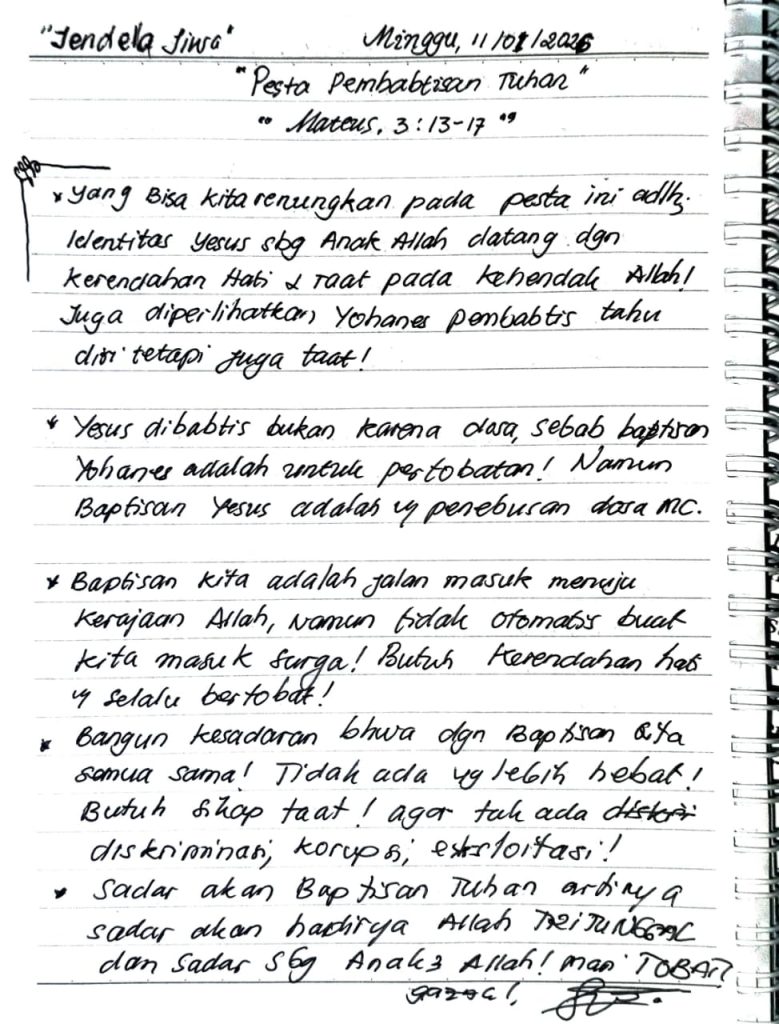 "Jendela Jiwa" Minggu, 11/01/2026
"Pesta Pembabtisan Tuhan"
"Mateus. 3:13-17"
* Yang Bisa kita renungkan pada pesta ini adlh.
Identitas Yesus sbg Anak Allah datang dgn
Kerendahan Hati & Taat pada Kehendak Allah!
Juga diperlihatkan Yohanes pembabtis tahu
diri tetapi juga taat!
* Yesus dibabtis bukan karena dosa, sebab baptisan
Yohanes adalah untuk pertobatan! Namun
Baptisan Yesus adalah penebusan dosa mc.
* Baptisan kita adalah jalan masuk menuju
Kerajaan Allah, Namun tidak otomatis buat
kita masuk surga! Butuh Kerendahan hati
selalu bertobat!
* Bangun kesadaran bhwa dgn Baptisan kita
semua sama! Tidak ada yg lebih hebat!
Butuh sikap taat! agar tak ada diskri
diskriminasi, korupsi, eksloitasi!
* Sadar akan Baptisan Tuhan artinya
sadar akan hadirya Allah TRITUNGGAL
dan Sadar sbg Anak2 Allah! mari TOBAT